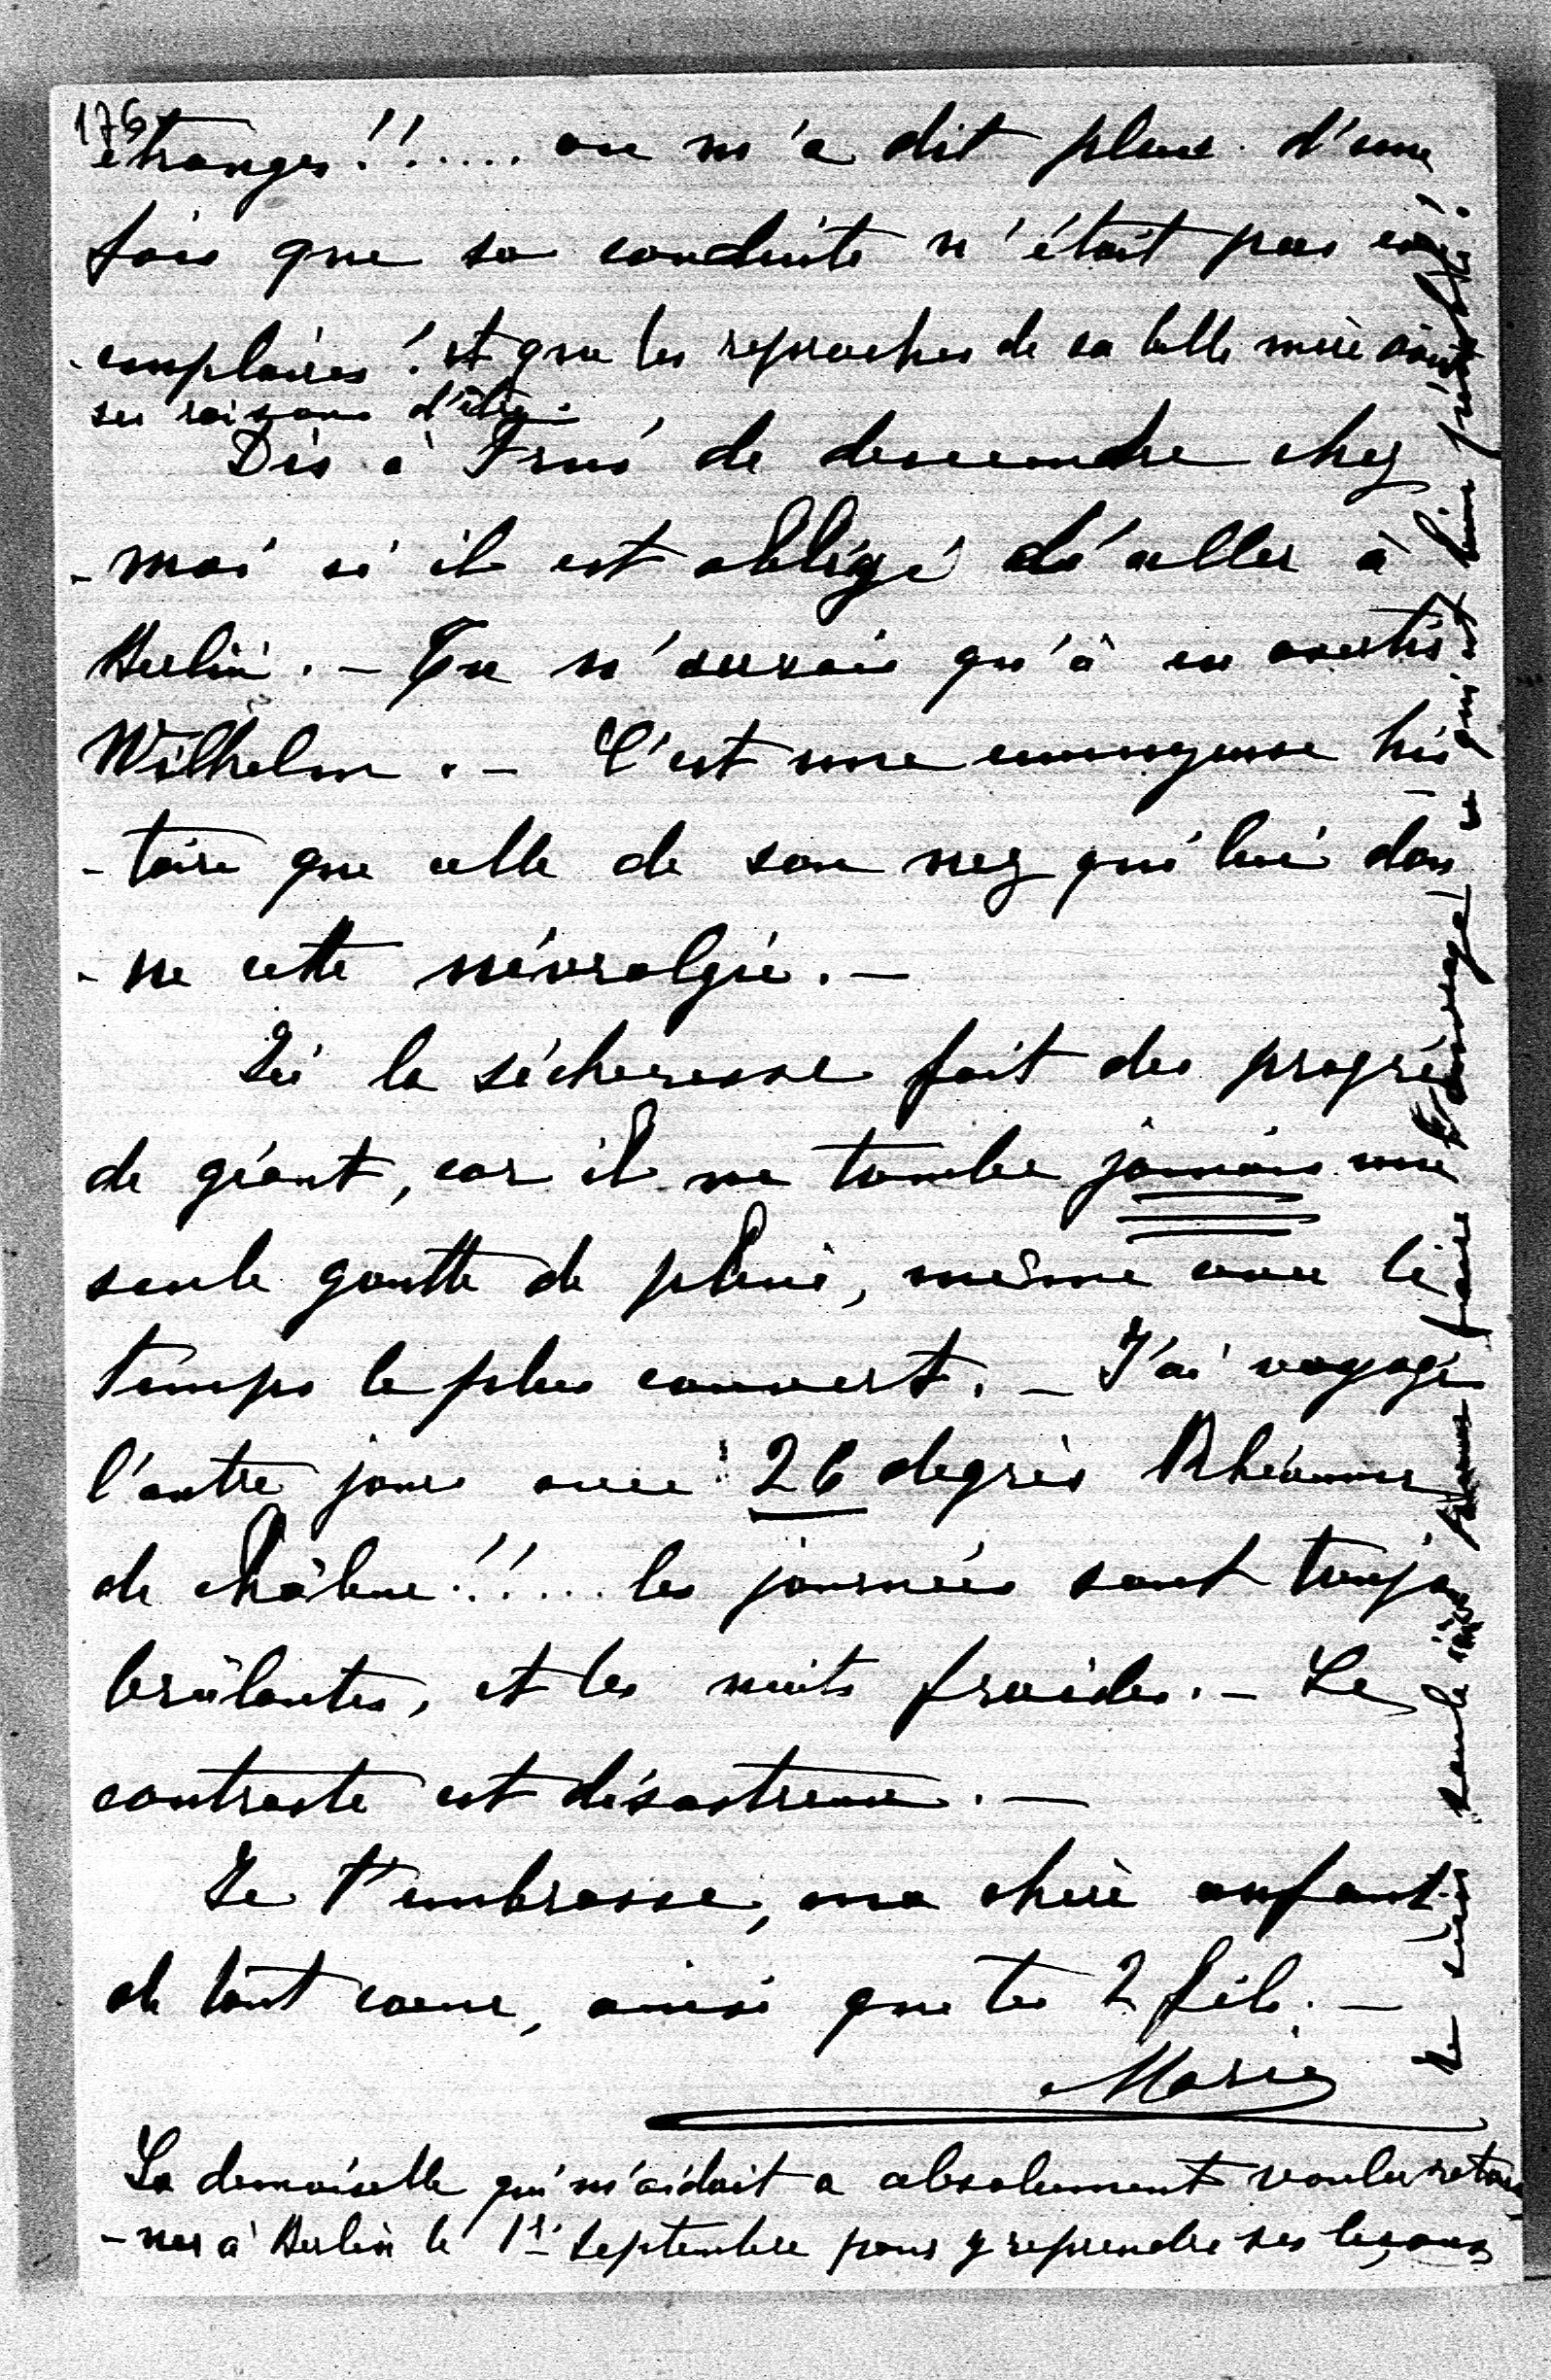 176
étranges!!..... on m'a dit plus d'une
fois que sa conduite n'était pas ex
-emplaires! et que les reproches de sa belle mère avaient
ses raisons d'être.
Dis à Frus de descendre chez
-moi si il est obligé d'aller à
Berlin. – Tu n'aurais qu'à en avertir
Wilhelm. – C'est une ennuyeuse his
-toire que celle de son nez qui lui don
-ne cette névralgie. –
Ici la sécheresse fait des progrès
de géant, car il ne tombe jamais une
seule goutte de pluie, même avec le
temps le plus couvert. – J'ai voyagé
l'autre jour avec 26 degrès Rhéaumur
de châleur!!... les journées sont touj
brûlantes, et les nuits froides. – Le
contraste est désastreux. –
Je t'embrasse, ma chère enfant
de tout coeur, ainsi que tes 2 fils. –
Marie
La demoiselle qui m'aidait a absolument voulu retour
-ner à Berlin le 1r. Septembre pour y reprendre ses leçons
Je suis seule ici pour faire ce qui est bien pénible!